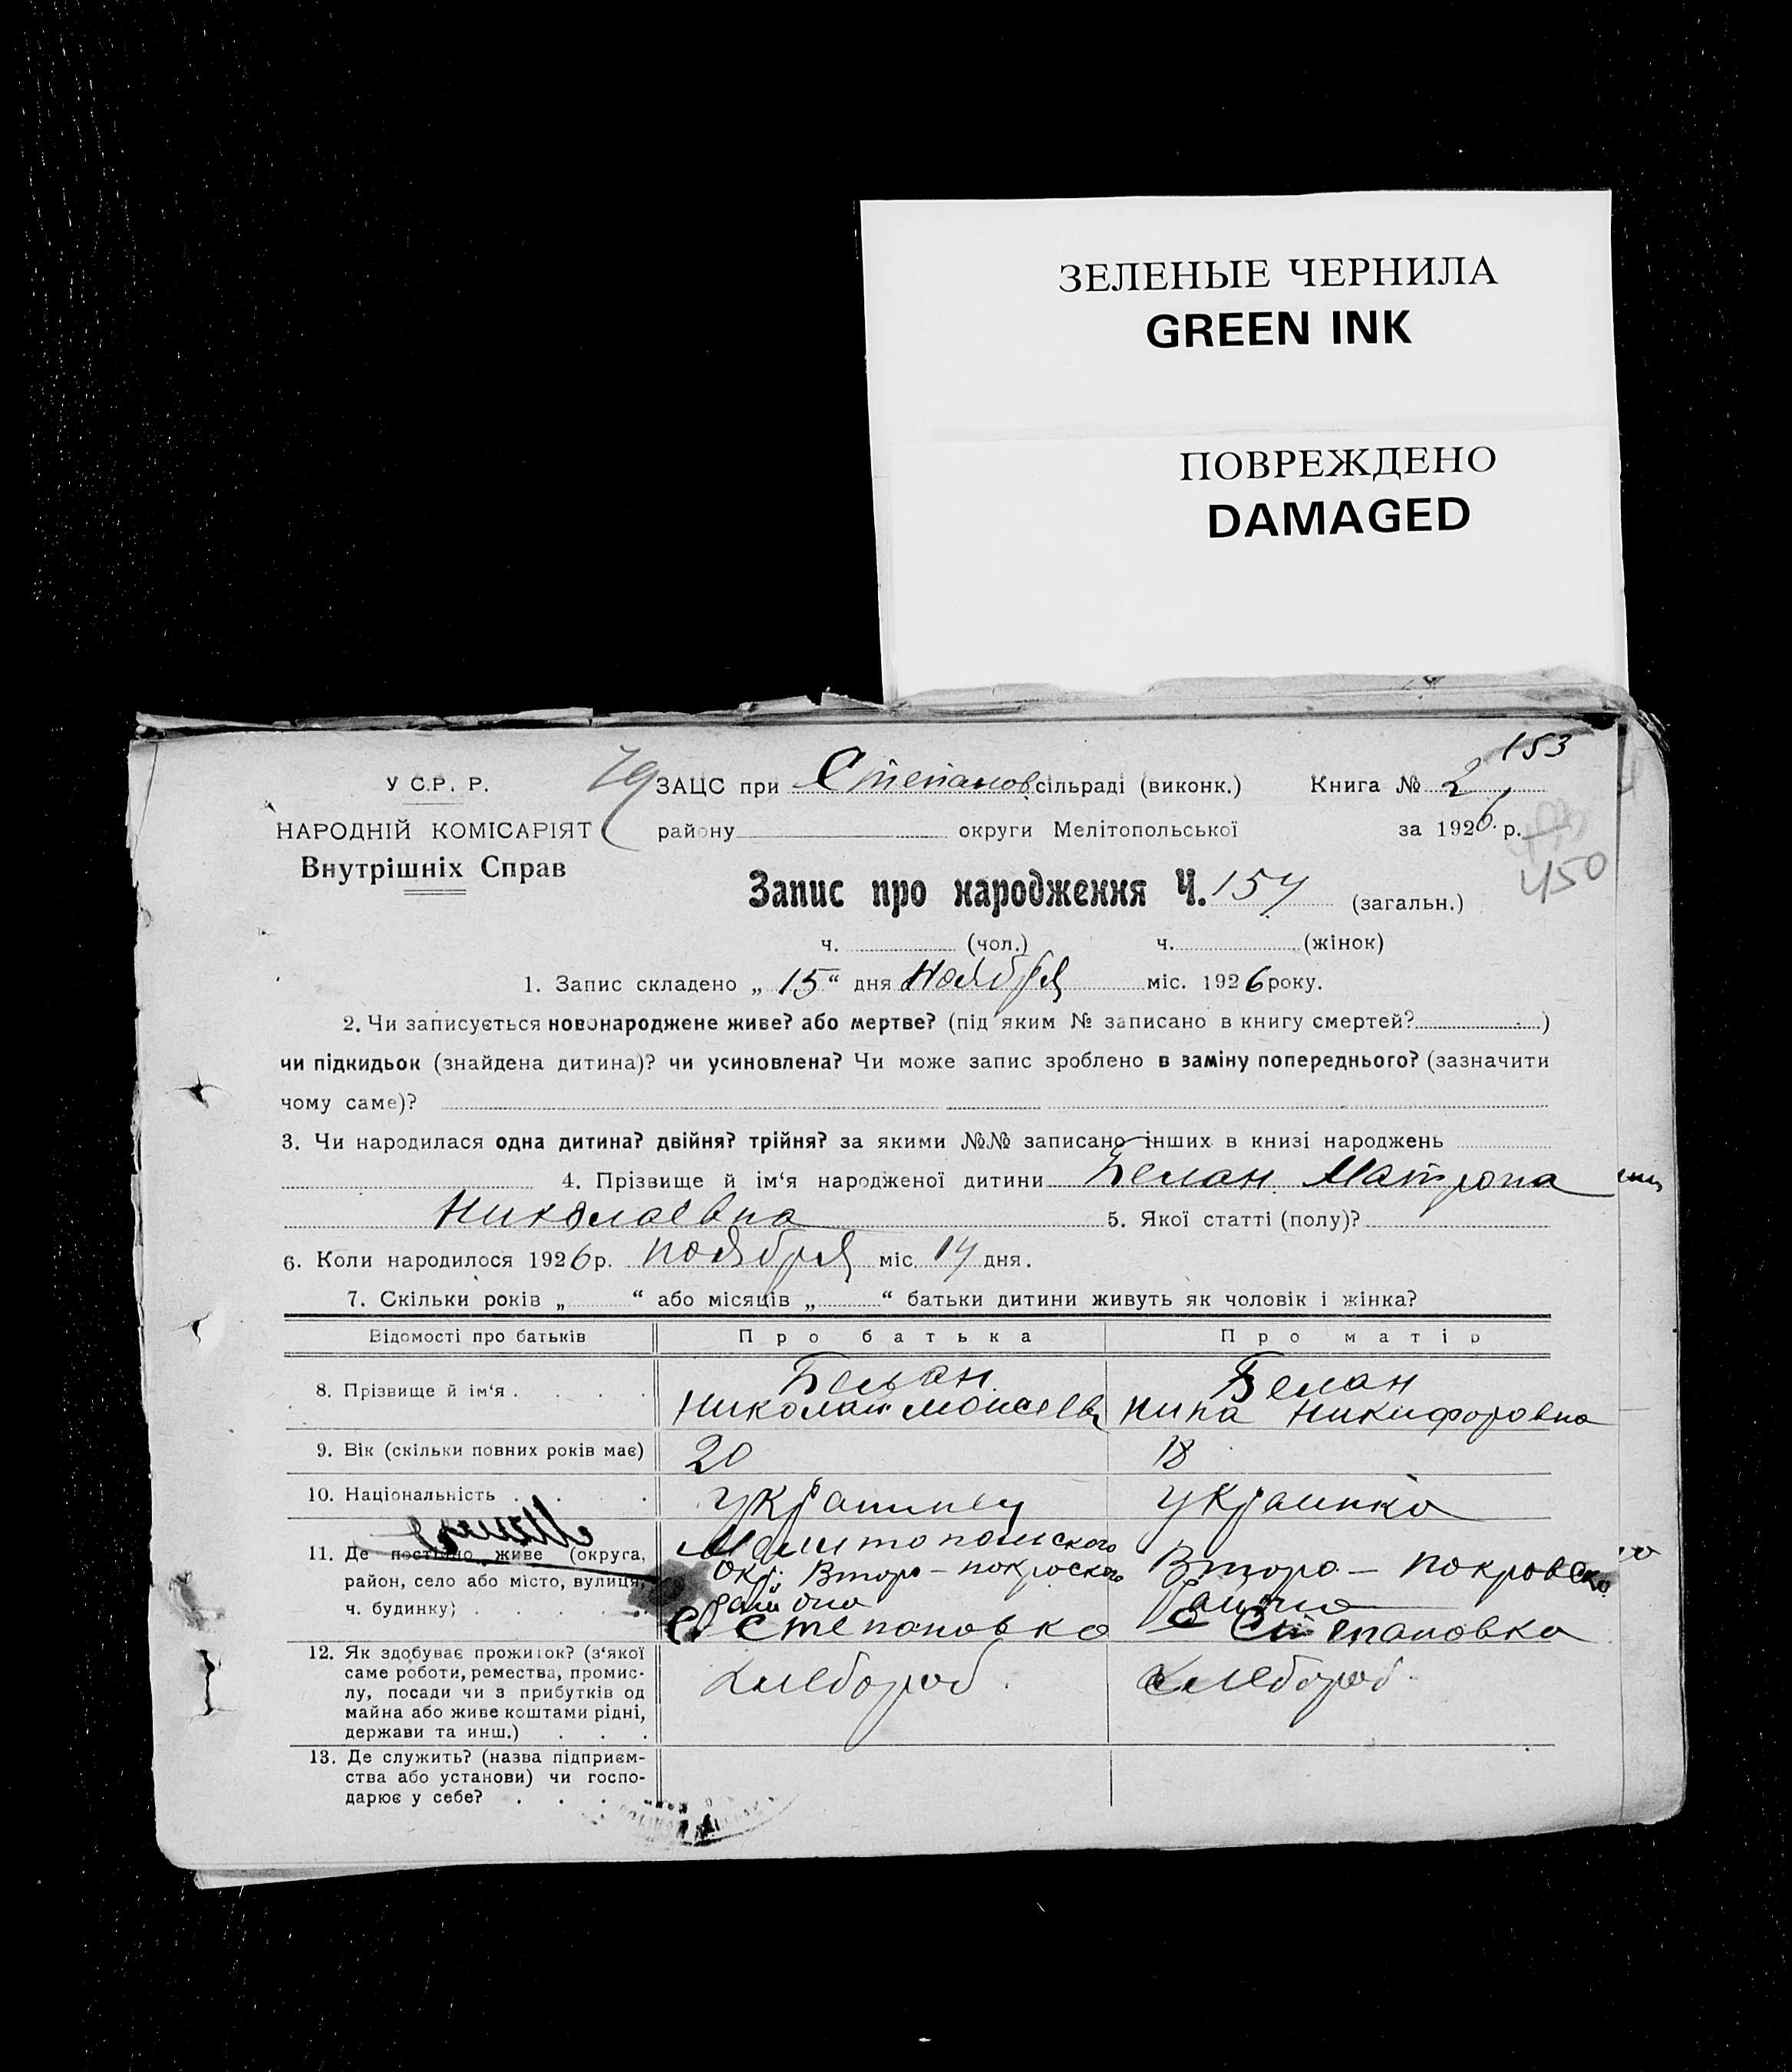 ЗЕЛЕНЫЕ ЧЕРНИЛА
GREEN INK
ПОВРЕЖДЕНО
DAMAGED
153
У С.Р. Р.
79 ЗАЦС при Степанов сільраді (виконк.) Книга № 2
НАРОДНІЙ КОМІСАРІЯТ
району округи Мелітопольської за 1926 р.
Внутрішніх Справ
450
Запис про народження Ч. 154 (загальн.)
ч. (чол.) ч. (жінок)
1. Запис складено „ 15 “ дня Ноября міс. 1926 року.
2. Чи записується новонароджене живе? або мертве? (під яким № записано в книгу смертей? )
чи підкидьок (знайдена дитина)? чи усиновлена? Чи може запис зроблено в заміну попереднього? (зазначити
чому саме)?
3. Чи народилася одна дитина? двійня? трійня? за якими №№ записано інших в книзі народжень
4. Прізвище й ім‘я народженої дитини Белан Матрона
Николаевна 5. Якої статті (полу)?
6. Коли народилося 1926 р. ноября міс. 14 дня.
7. Скільки років „ “ або місяців „ “ батьки дитини живуть як чоловік і жінка?
Відомості про батьків Про батька Про матір
8. Прізвище й ім‘я . . . . Белан Белан
Николай Моисеев Нина Никифоровна
9. Вік (скільки повних років має) 20 18
10. Національність . . . . украинец украинка
11. Де постійно живе (округа, район, село або місто, вулиця, ч. будинку) . . . . .
Мелитопольского
окр. Второ-покроского
района
с Степановка
Второ-покровско
района
с Степановка
12. Як здобуває прожиток? (з‘якої
саме роботи, ремества, промис-
лу, посади чи з прибутків од
майна або живе коштами рідні,
держави та инш.) . . .
хлебороб хлебороб
13. Де служить? (назва підприєм-
ства або установи) чи госпо-
дарює у себе? . . .